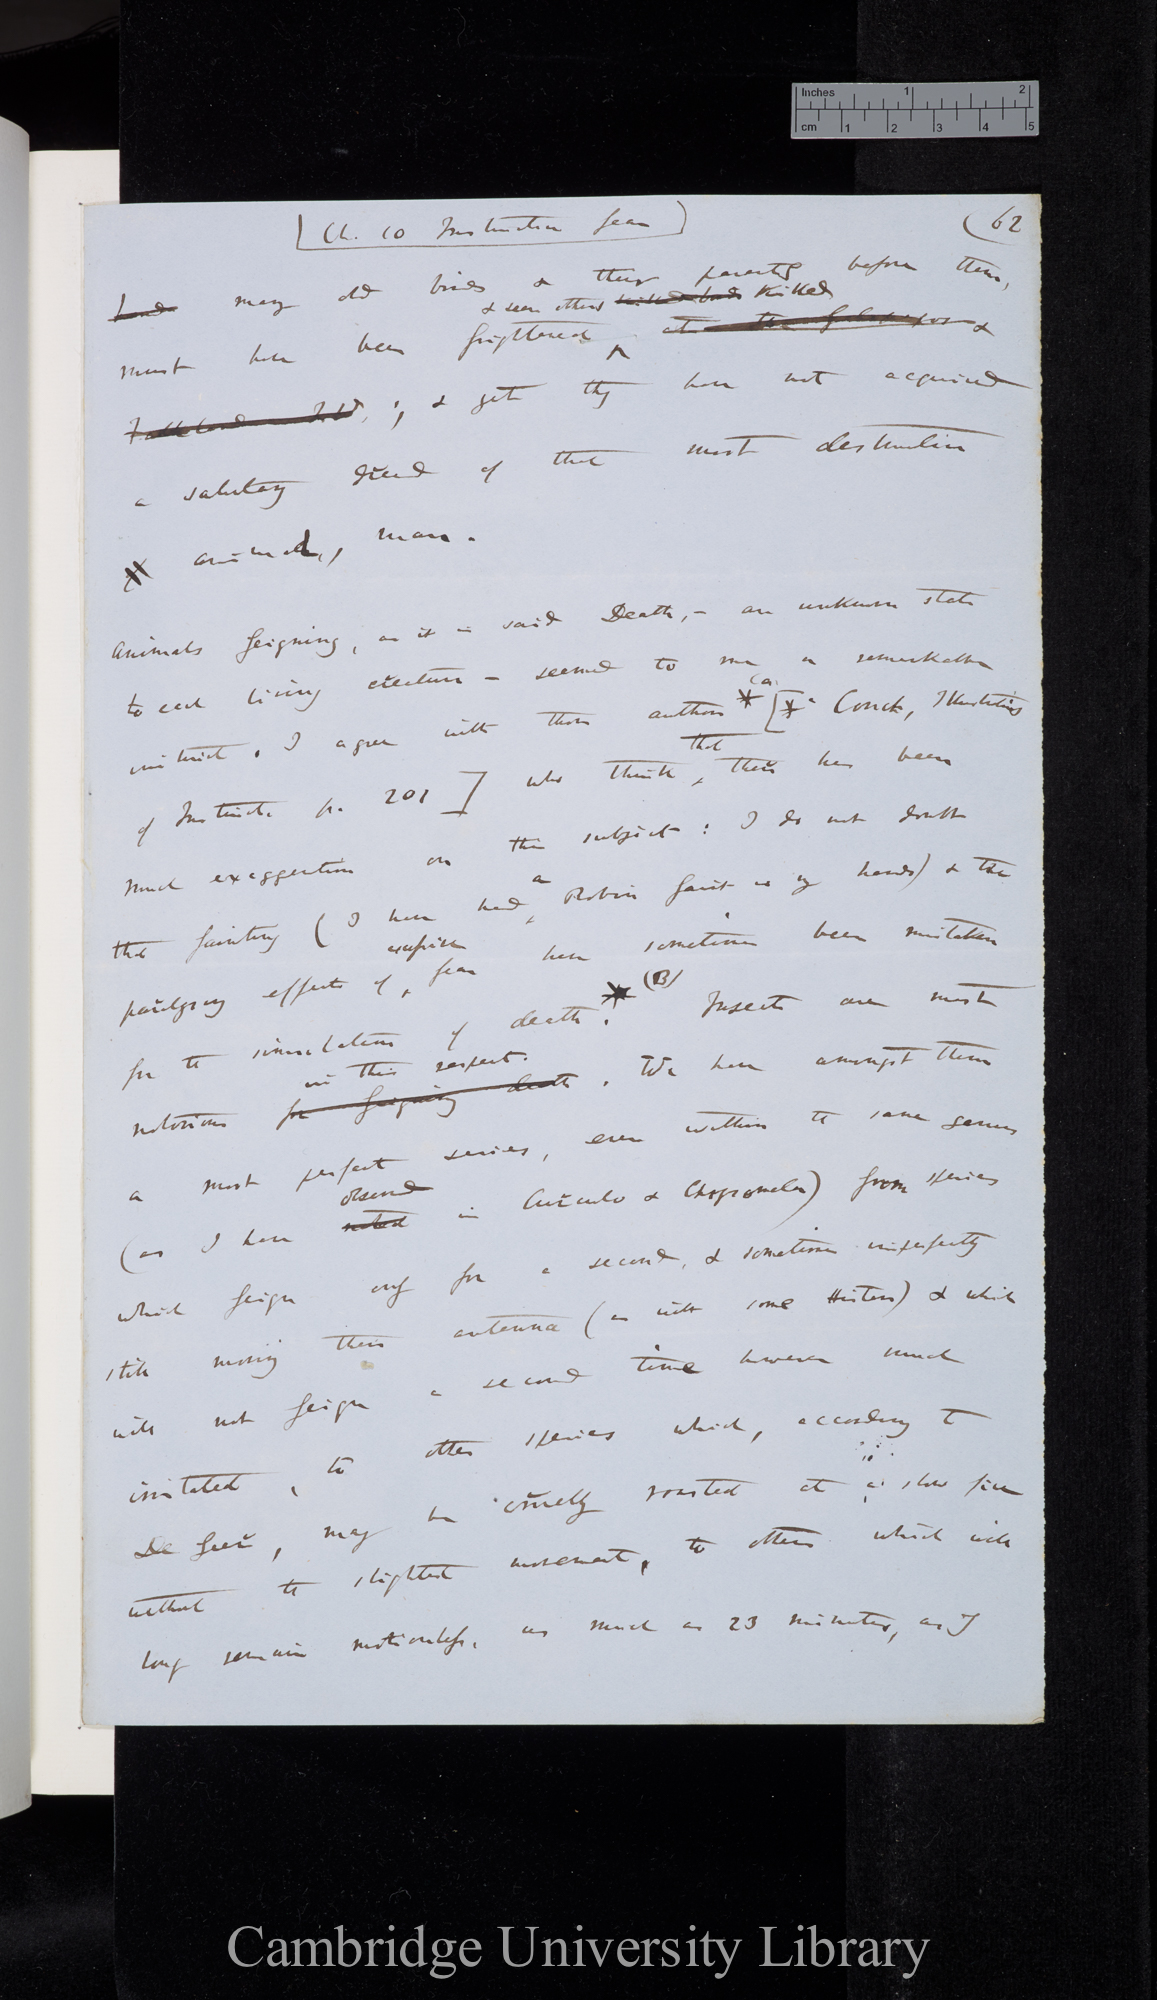 Inches 1 2
cm 1 2 3 4 5
[Ch. 10 Instinctive fear] (62
many old birds & their parents before them,
& seen others killed birds killed
must have been frightened at the & 
Falkland ; & yet they have not acquired
a salutary dread of that most destructive
animal, man.
Animals feigning, as it is said Death,— an unknown state
to each living creature — seemed to me a remarkable
(a
instinct. I agree with those authors [ Couch, Illustrations
that
of Instinct. p. 201] who think, there has been
much exaggeration on this subject: I do not doubt
a
that fainting (I have had Robin faint in my hands) & the
excessive
paralysing effects of fear have sometimes been mistaken
(B)
for the simulation of death. Insects are most
in this respect.
notorious for feigning death. We have amongst them
a most perfect series, even within the same genus
observed
(as I have noted in Curculio & Chrysomela) from species
which feign only for a second, & sometimes imperfectly
still moving their antennæ (as with some Histers) & which
will not feign a second time however much
irritated, to other species which, according to
De Geer, may be cruelly roasted at a slow fire
without the slightest movement, to others which will
long remain motionless, as much as 23 minutes, as I
Cambridge University Library